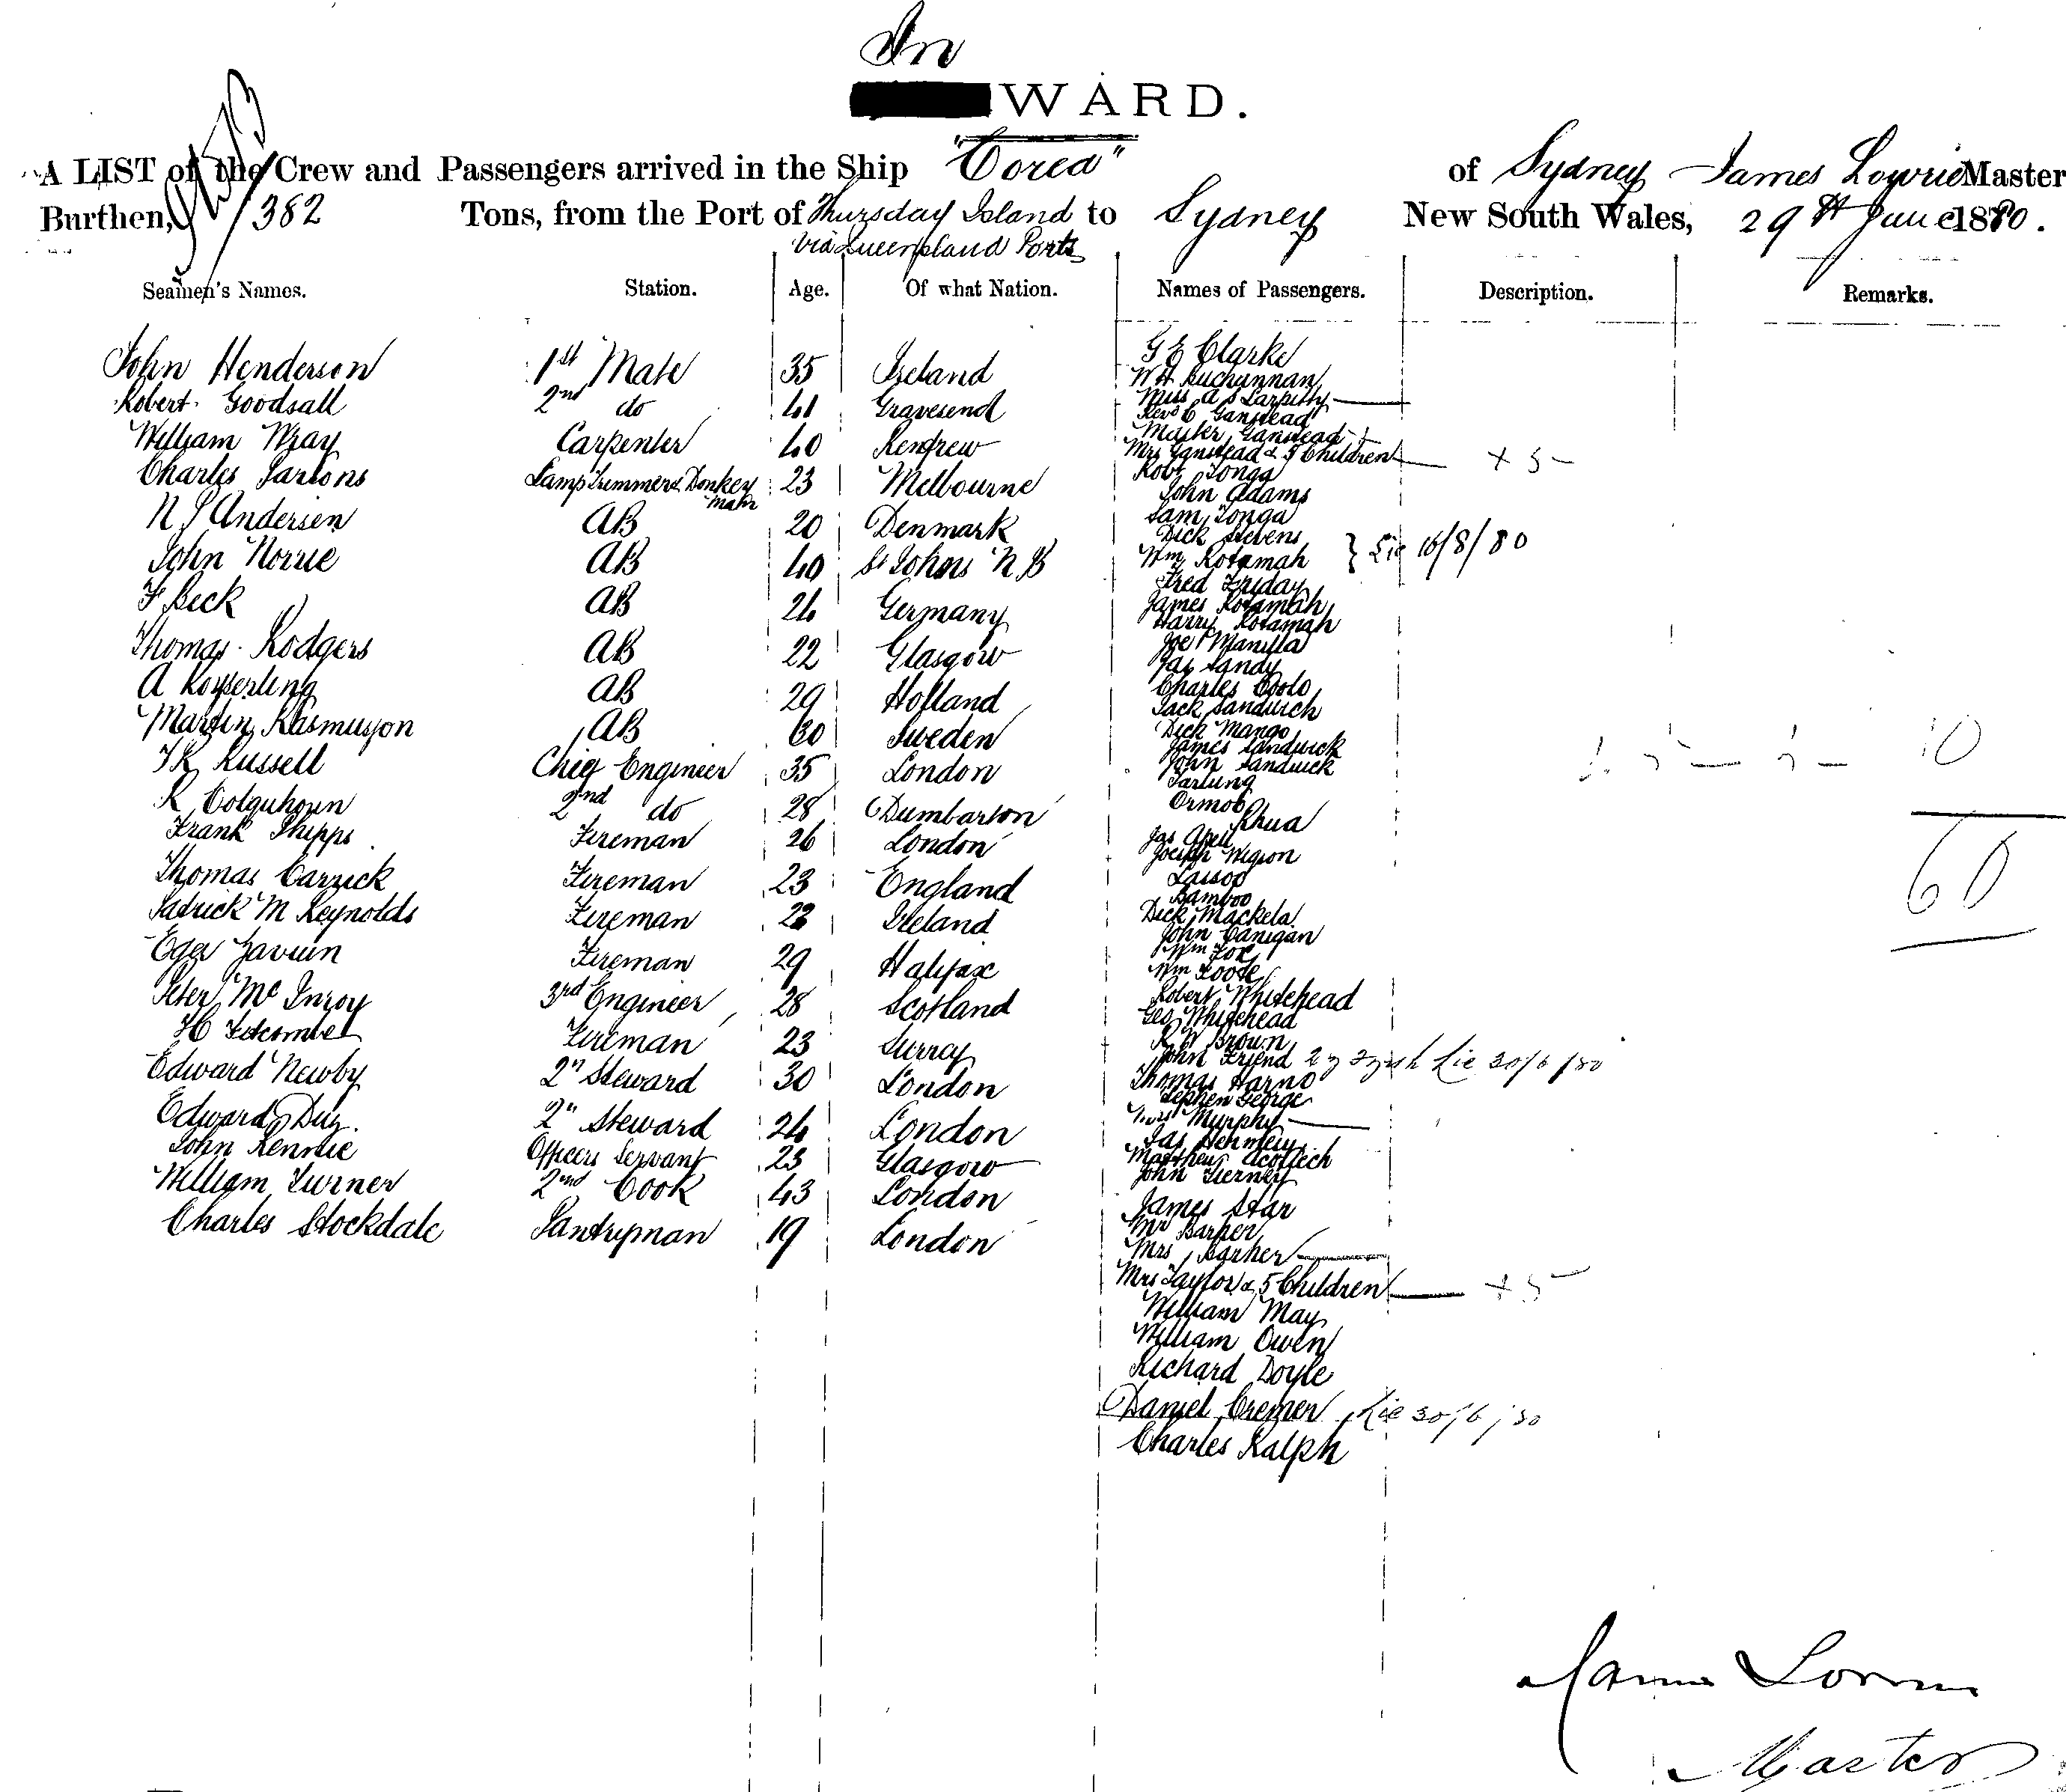 In
WARD.
A LIST of the Crew and Passengers arrived in the Ship "Corea" of Sydney James Lowrie Master
Burthen, 382 Tons, from the Port of Thursday Island to Sydney New South Wales, 29th June 1880.
Via Queensland Ports
Seamen's Names. Station. Age. Of what Nation. Names of Passengers. Description. Remarks.
John Henderson 1st Mate 35 Ireland
Robert Goodsall 2nd do 41 Gravesend
William Wray Carpenter 40 Renfrew
Charles Parsons Lamp Trimmer & Donkey Man 23 Melbourne
N P Andersen AB 20 Denmark
John Norrie AB 40 St Johns N B
F Beck AB 24 Germany
Thomas Rodgers AB 22 Glasgow
A Koyserling AB 29 Holland
Martin Rasmusson AB 60 Sweden
Russell Chief Engineer 35 London
R Colquhoun 2nd do 28 Dumbarton
Frank Shipps Fireman 26 London
Thomas Carrick Fireman 23 England
Patrick M Reynolds Fireman Ireland
Fireman 29 Halifax
Peter McInroy 3rd Engineer 28 Scotland
H Fireman 23 Surrey
Edward Newby 2nd Steward 30 London
Edward 2nd Steward 24 London
John Rennie Officers Servant 23 Glasgow
William Turner 2nd Cook 43 London
Charles Stockdale Pantryman 19 London
G E Clarke
W H Buchannan
Miss A S
Revd C Ganstead
Master Ganstead
Mrs Ganstead & 5 Children + 5
Robt Tonga
John Adams
Sam Tonga
Dick Stevens
Wm Rotamah } Lic 16/8/80
Fred Friday
James Rotamah
Harry Rotamah
Joe Manilla
Jas Sandy
Charles
Jack Sandwich
Dick Mango
James Sandwick
John Sandwick
Tarlung
Ormob
Rhua
Jas April
Joseph
Lassoo
Bamboo
Dick Mackela
John Canigan
Wm Fox
Wm Foote
Robert Whitehead
Geo Whitehead
R W Brown
John Friend Lic 30/6/80
Thomas Harno
Stephen George
Mrs Murphy
Jas
Matthew
John Tierney
James Star
Mr Barber
Mrs Barber
Mrs Taylor & 5 Children + 5
William May
William Owen
Richard Doyle
Daniel Cremer Lic 30/6/80
Charles Ralph
10
60
James Lowrie
Master